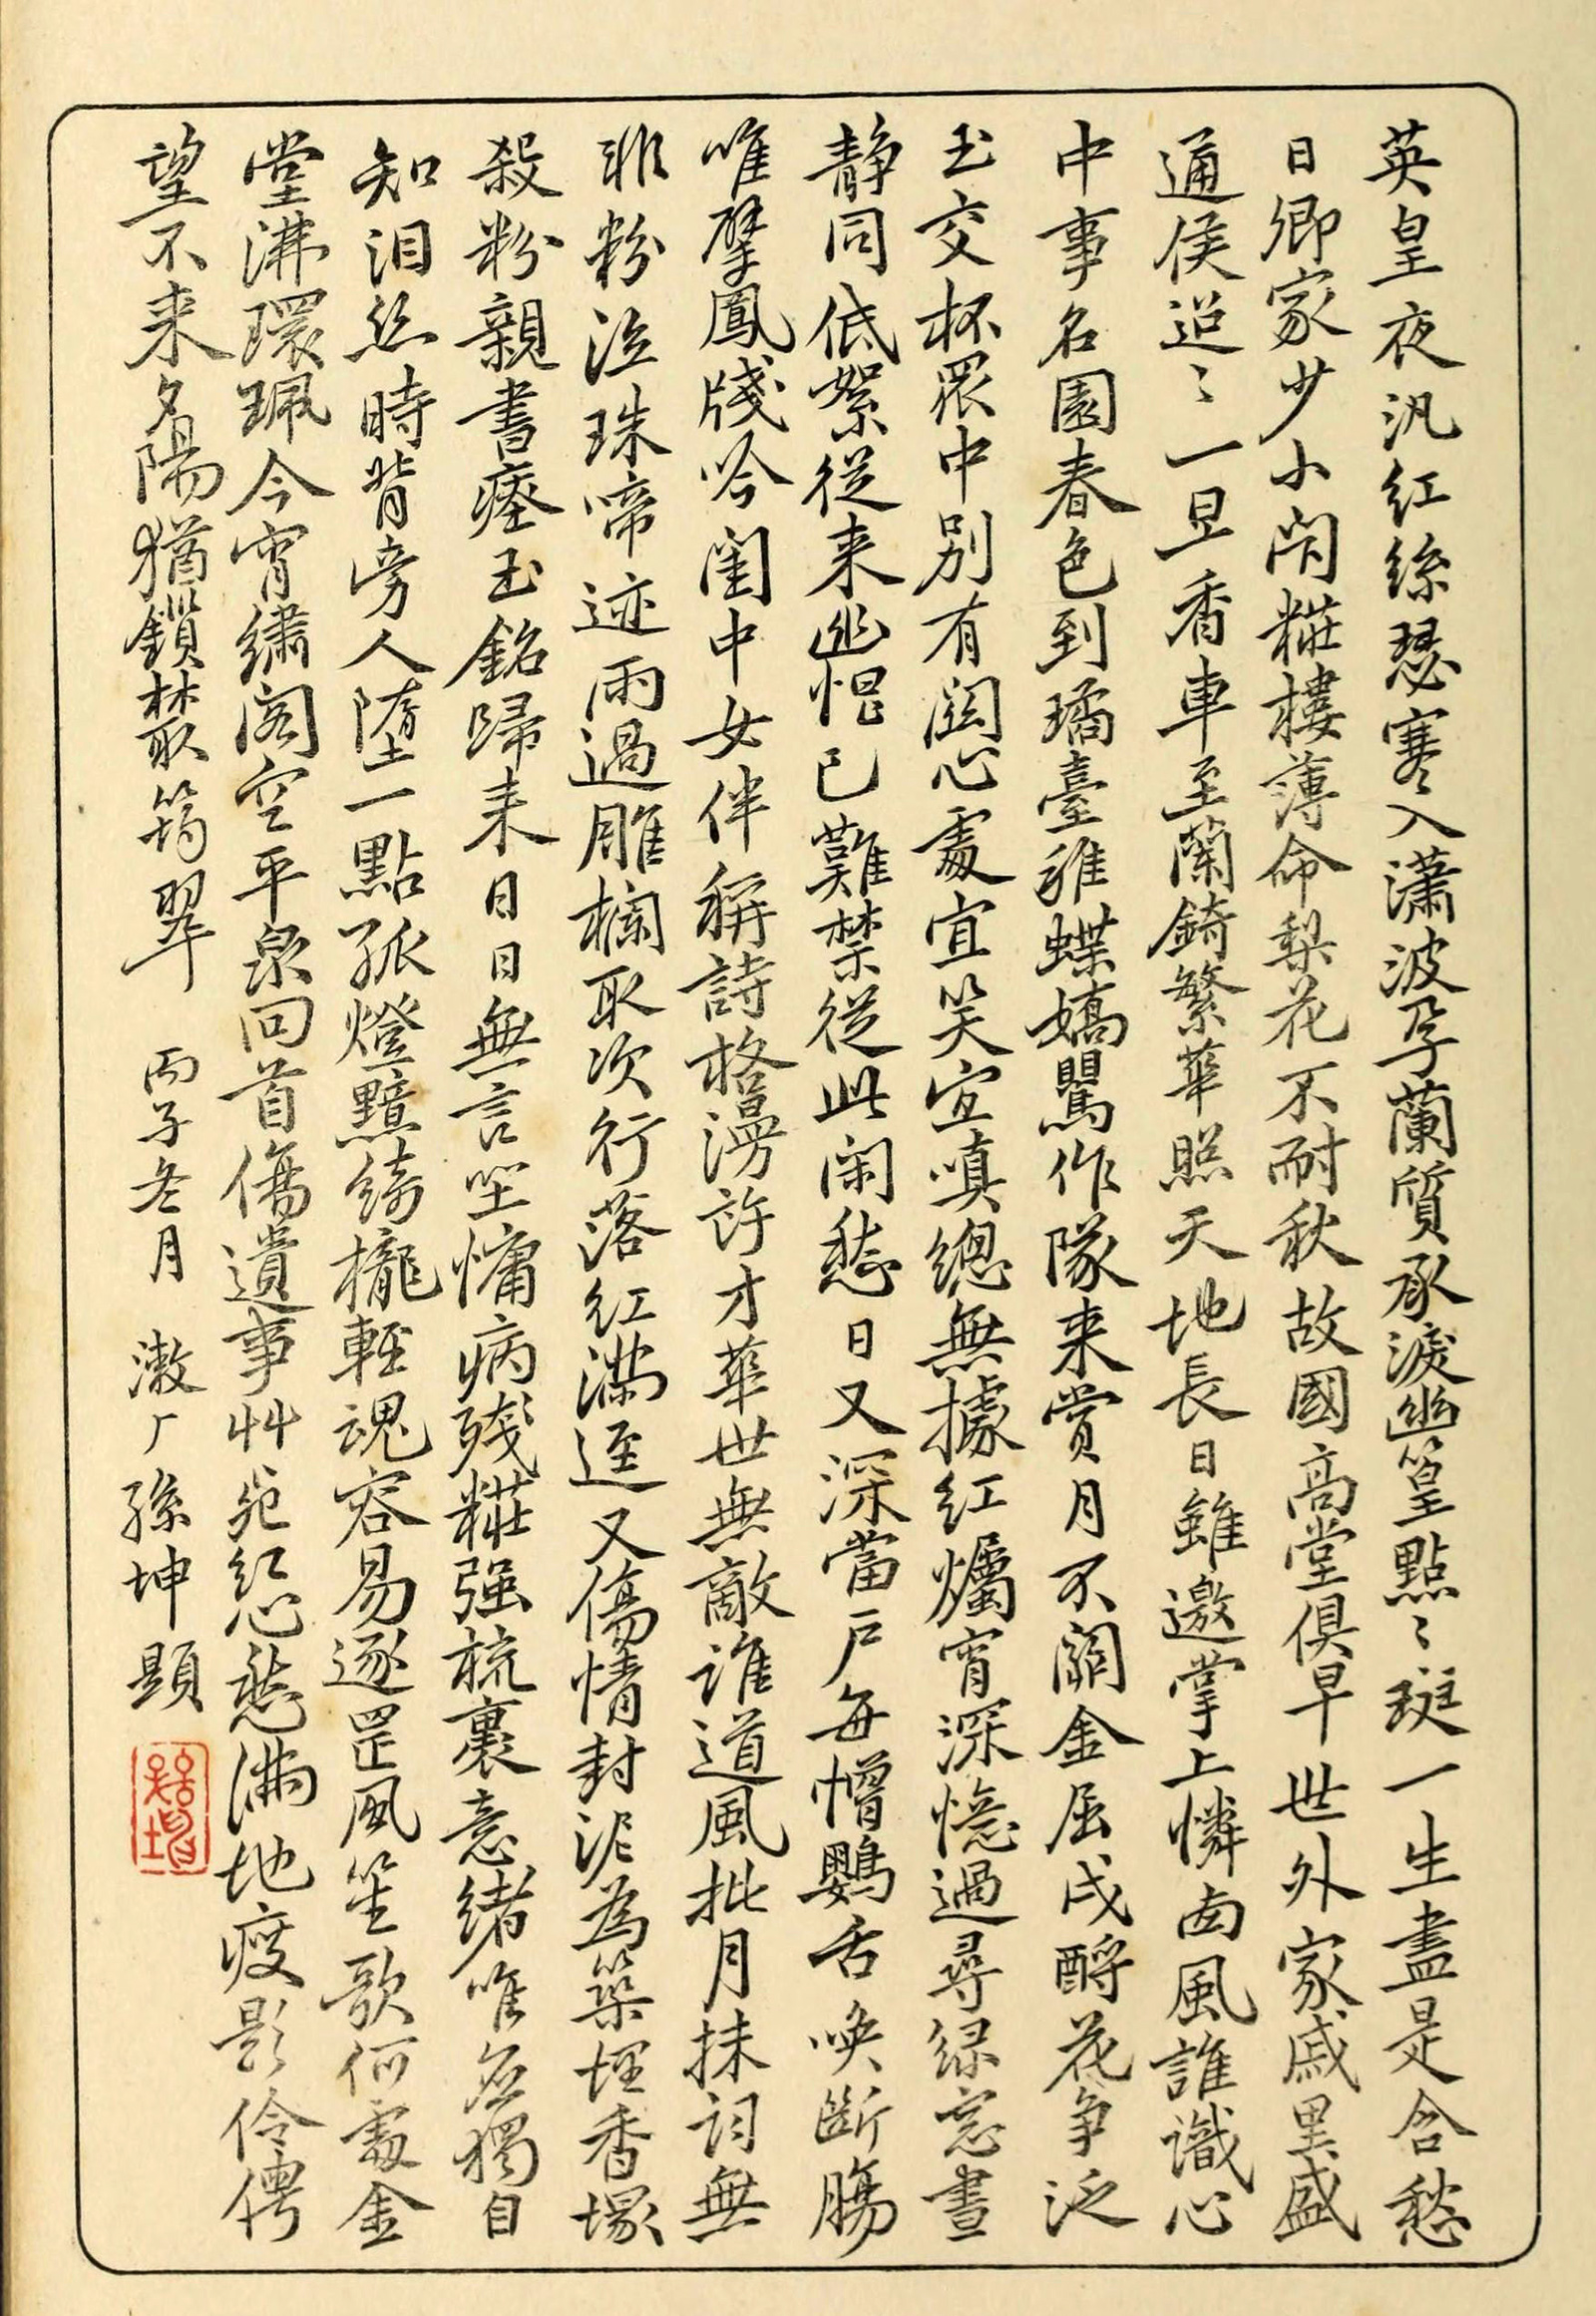 英皇夜汎紅絲瑟寒入瀟波孕蘭質承淚幽篁點〻斑一生盡是含愁
日卿家少小閉糚樓薄命梨花不耐秋故國高堂俱早世外家戚里盛
通侯迢〻一旦香車至蘭錡繁華照天地長日雖邀掌上憐西風誰識心
中事名園春色到璚臺雅蝶嬌鸎作隊来賞月不關金屈戌酹花争泛
玉交杯眾中別有關心處宜笑宜嗔總無據紅爥宵深憶過尋綠窓晝
静同低絮從来幽恨已難禁從此閑愁日又深當戶每憎鸚舌喚斷腸
唯擘鳳牋吟閨中女伴稱詩格漫許才華世無敵誰道風批月抹詞無
非粉泣珠啼迹雨過雕欄取次行落紅滿逕又傷情封泥為築埋香塚
殺粉親書瘞玉銘歸来日日無言坐慵病殘糚强梳裹意緒唯應獨自
知泪絲時背旁人墮一點孤燈黯綺櫳輕魂容易逐罡風笙歌何處金
堂沸環珮今宵繡閣空平泉回首傷遺事艸苑紅心愁滿地瘦影伶俜
望不来夕陽猶鎖叢筠翠 丙子冬月 澂厂孫坤題